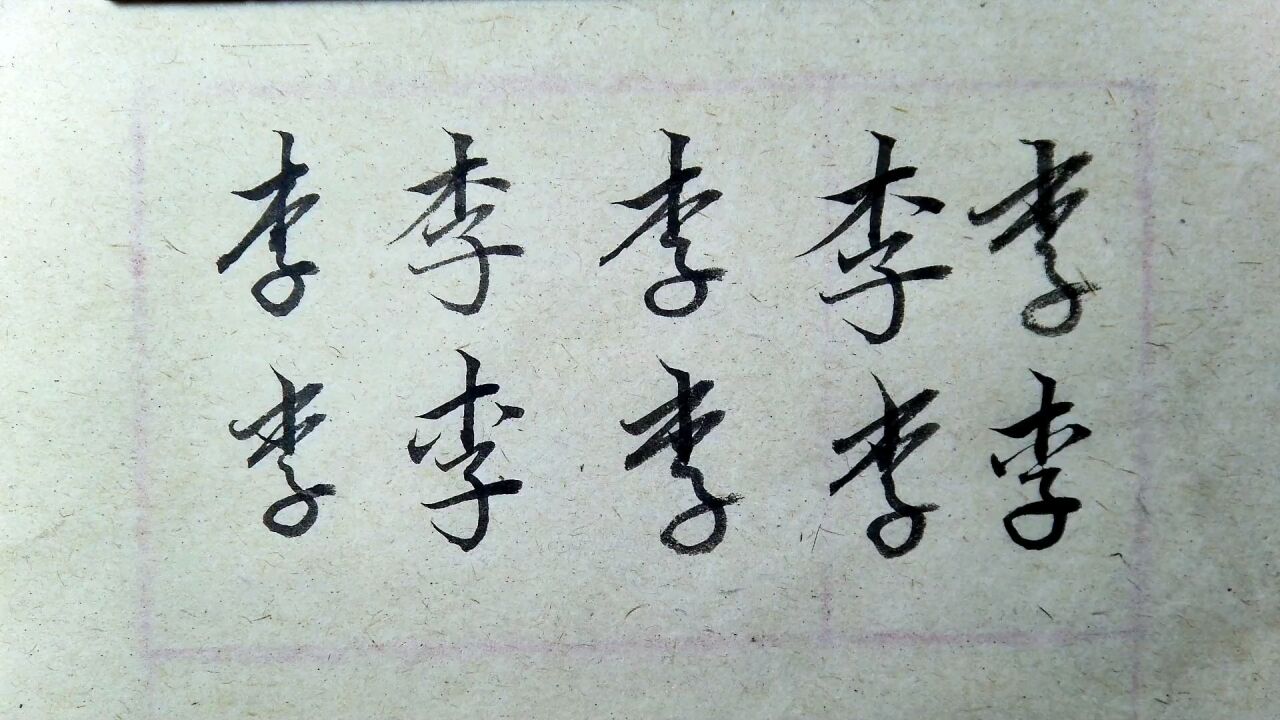 李李李李李
李李李李李